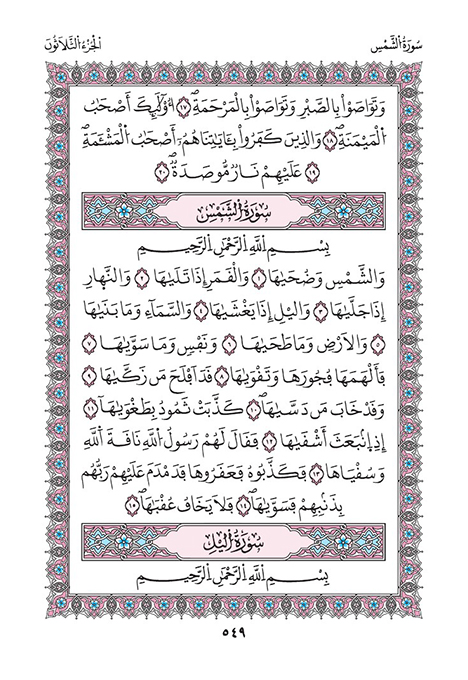 سُورَةُ الشَّمْسِ
الْجُزْءُ الثَّلَاثُونَ
وَتَوَاصَوْاْ بِالصَّبْرِ وَتَوَاصَوْاْ بِالْمَرْحَمَةِ ١٧ أُوْلَٰٓئِكَ أَصْحَٰبُ
الْمَيْمَنَةِ ١٨ وَالذِينَ كَفَرُواْ بِـَٔايَٰتِنَا هُمُۥٓ أَصْحَٰبُ الْمَشْـَٔمَةِ
١٩ عَلَيْهِمْ نَارٌ مُّوصَدَةٌ ٢٠
سُورَةُ الشَّمْسِ
بِسْمِ اللَّهِ الرَّحْمَٰنِ الرَّحِيمِ
وَالشَّمْسِ وَضُحَيٰهَا ١ وَالْقَمَرِ إِذَا تَلَيٰهَا ٢ وَالنَّهَارِ
إِذَا جَلَّيٰهَا ٣ وَالَيْلِ إِذَا يَغْشَيٰهَا ٤ وَالسَّمَآءِ وَمَا بَنَيٰهَا
٥ وَالَارْضِ وَمَا طَحَيٰهَا ٦ وَنَفْسٍ وَمَا سَوَّيٰهَا ٧
فَأَلْهَمَهَا فُجُورَهَا وَتَقْوَيٰهَا ٨ قَدَ اَفْلَحَ مَن زَكَّيٰهَا ٩
وَقَدْ خَابَ مَن دَسَّيٰهَا ١٠ كَذَّبَتْ ثَمُودُ بِطَغْوَيٰهَا ١١
إِذِ اِنۢبَعَثَ أَشْقَيٰهَا ١٢ فَقَالَ لَهُمْ رَسُولُ اللَّهِ نَاقَةَ اللَّهِ
وَسُقْيَٰهَا ١٣ فَكَذَّبُوهُ فَعَقَرُوهَا فَدَمْدَمَ عَلَيْهِمْ رَبُّهُم
بِذَنۢبِهِمْ فَسَوَّيٰهَا ١٤ فَلَا يَخَافُ عُقْبَٰهَا ١٥
سُورَةُ الَيْلِ
بِسْمِ اللَّهِ الرَّحْمَٰنِ الرَّحِيمِ
٥٤٩